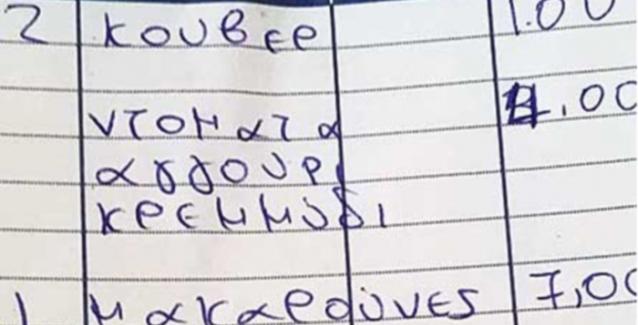 2 κουβερ 1.00
ντοματα 4.00
αγγουρι
κρεμμυδι
1 μακαρούνες 7,00